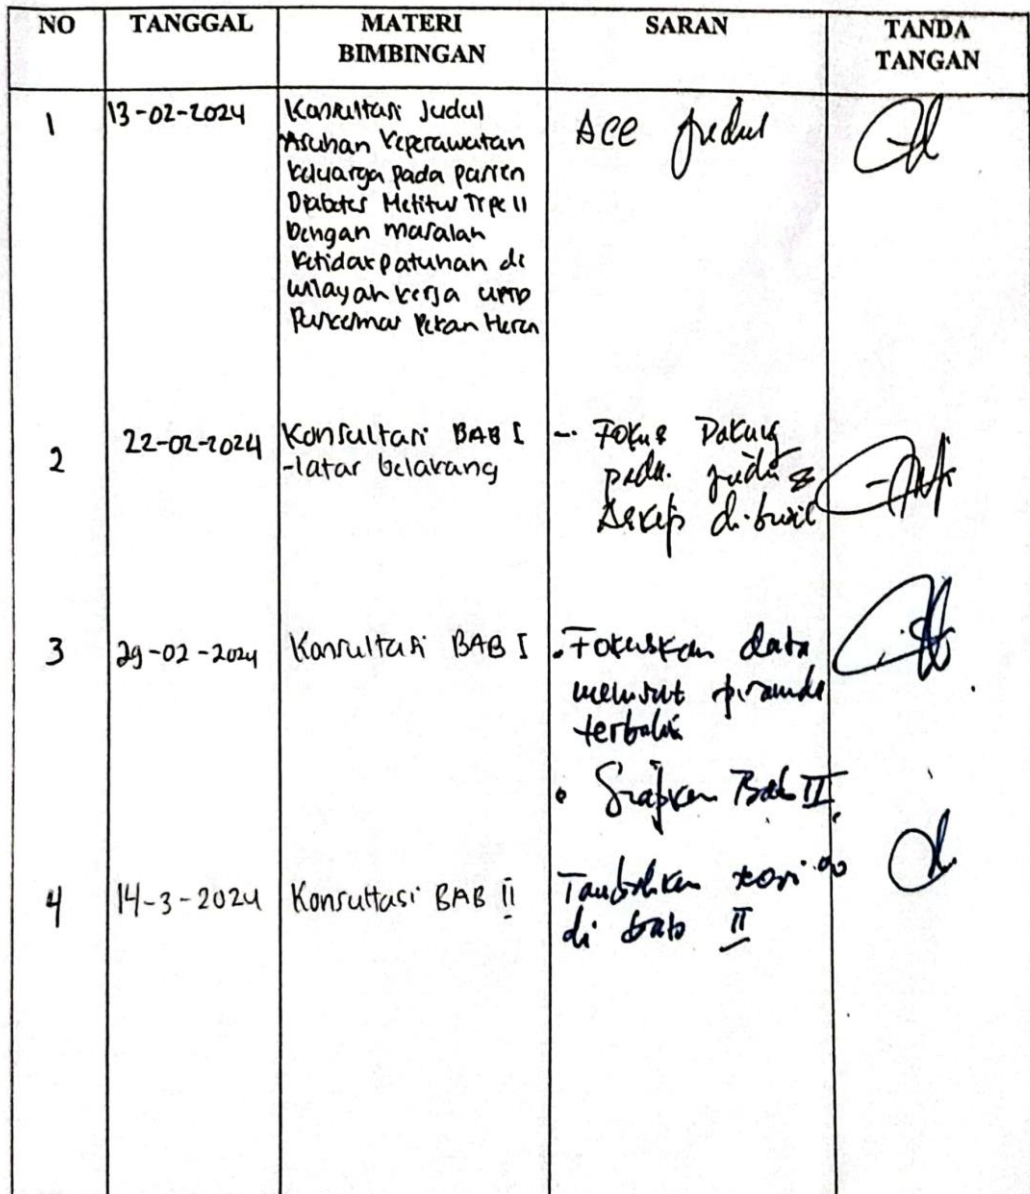 NO TANGGAL MATERI BIMBINGAN SARAN TANDA TANGAN
1 13-02-2024
Konsultasi Judul
Asuhan Keperawatan
keluarga pada pasien
Diabetes Melitus Tipe II
Dengan masalah
Ketidakpatuhan di
wilayah kerja UPTD
Puskesmas Pekan Heran
ACC judul
2 22-02-2024
Konsultasi BAB I
-latar belakang
- Fokus
pada judul
Askep
3 29-02-2024
Konsultasi BAB I
. Fokuskan data
menurut piramida
terbalik
. Siapkan Bab II
4 14-3-2024
Konsultasi BAB II
Tambahkan teori
di bab II